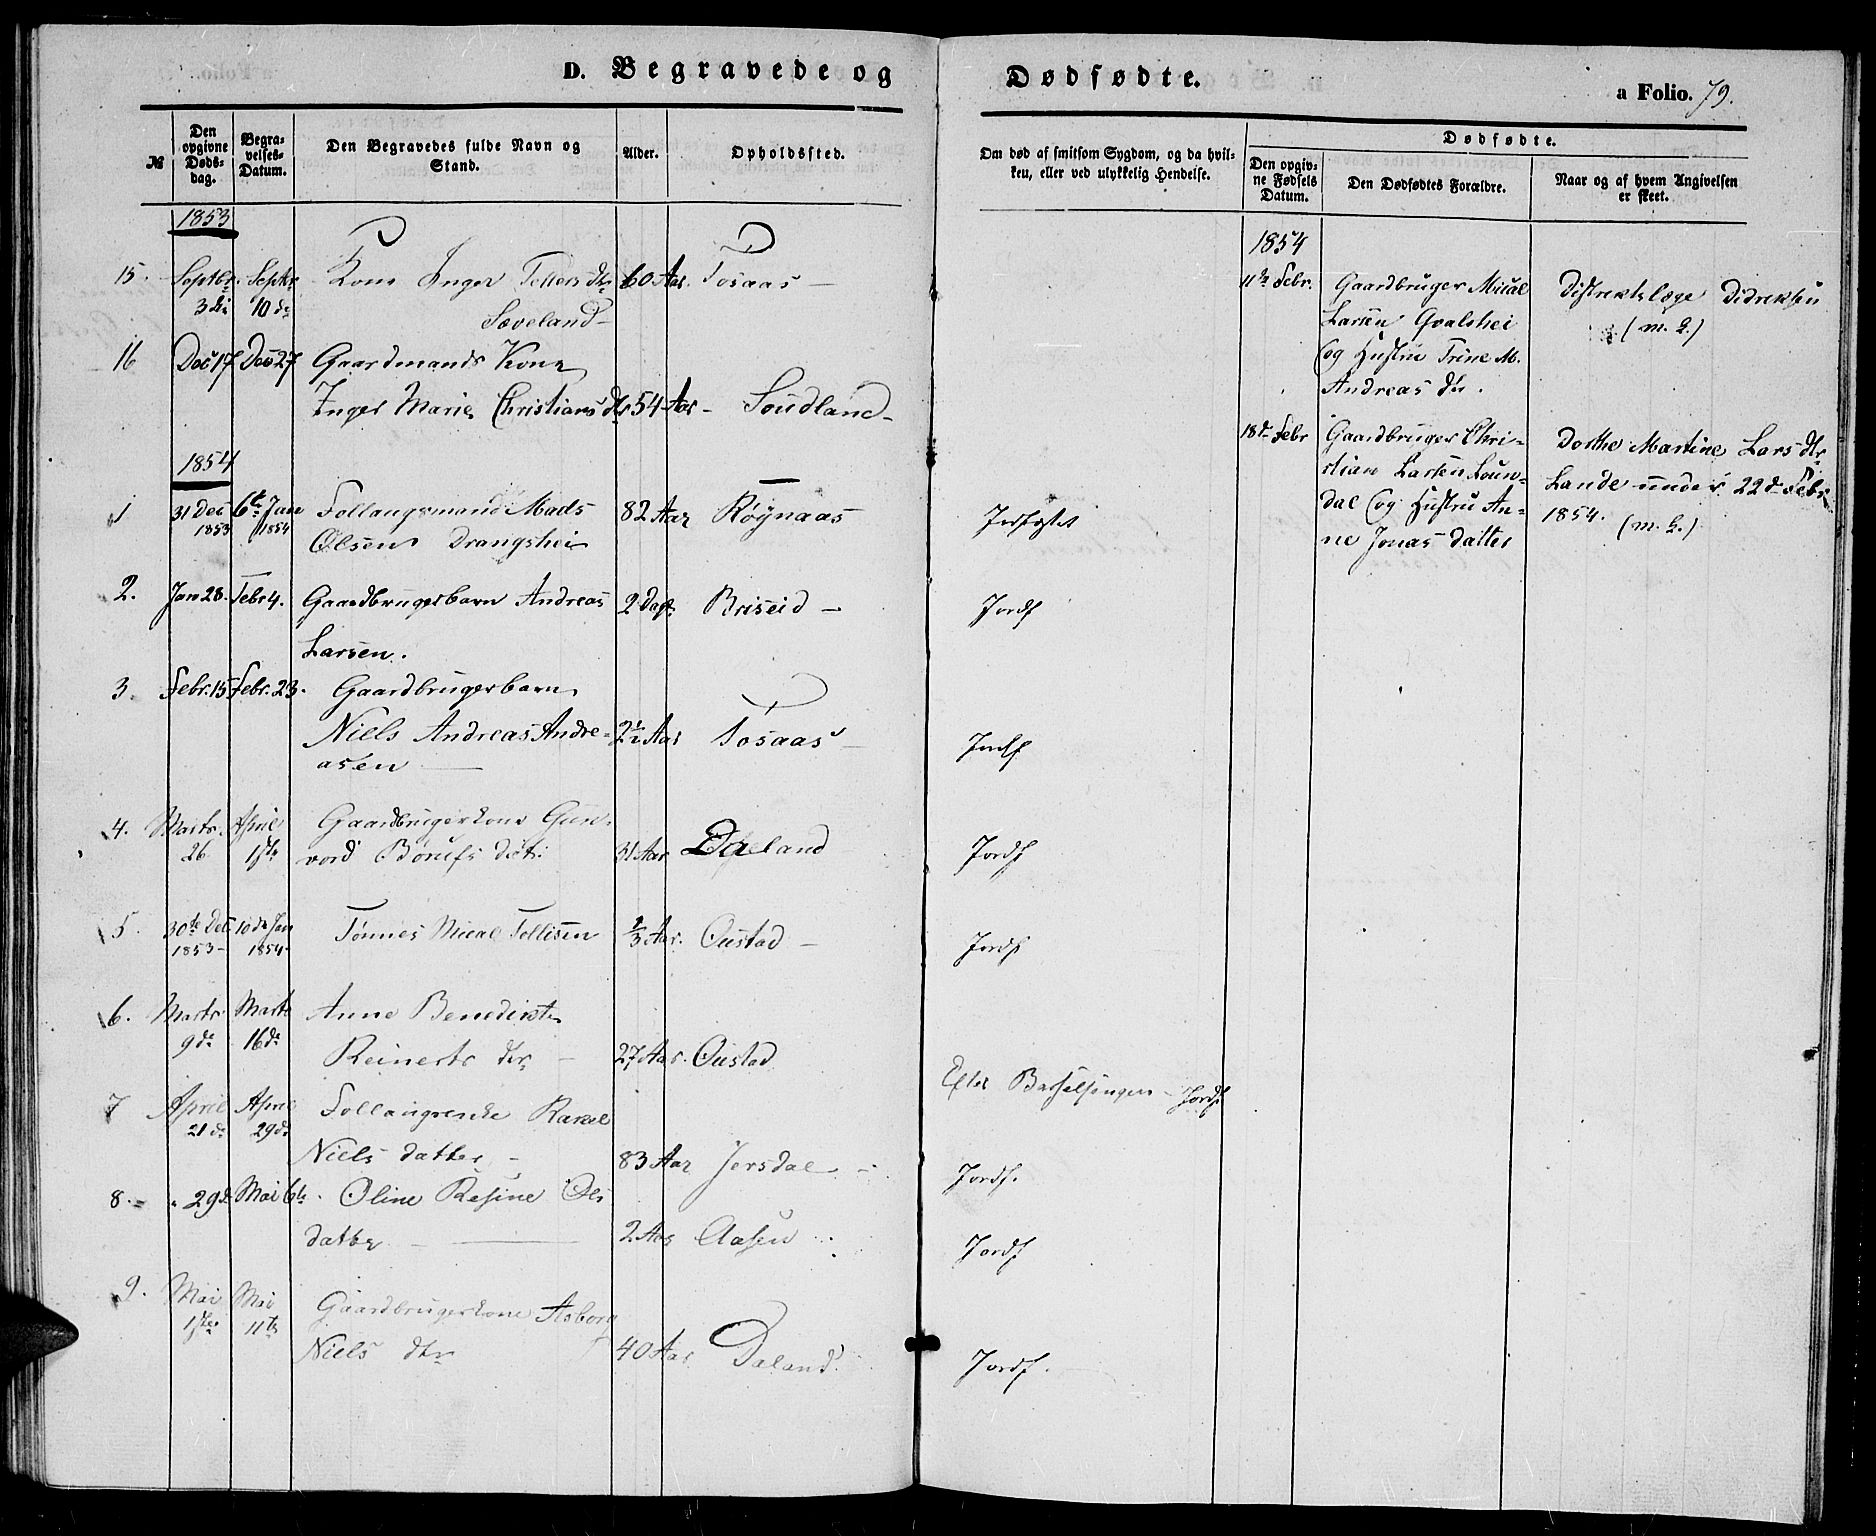 D. Begravede og Dødfødte.
a Folio. 79.
№
Den opgivne Døds-dag.
Begra-velses-Datum.
Den Begravedes fulde Navn og Stand.
Alder.
Opholdssted.
Om død af smitsom Sygdom, og da hvil-
ken, eller ved ulykkelig Hendelse.
Dødfødte.
Den opgiv-ne Fødsels Datum.
Den Dødfødtes Forældre.
Naar og af hvem Angivelsen er skeet.
1853
15. Septbr. Septbr. Kone Inger Tellefs dtr 60 Aar. Tosaas –
3die 10de Sæveland –
16 Dec 17 Dec 27 Gaardmands Kone
Inger Marie Christians dtr 54 Aar – Soudland –
1854
1 31 Dec 6te Jan Follaugsmand Mads 82 Aar Røynaas Jordfæstet
1853 1854 Olsen Drangshei
2. Jan 28. Febr 4. Gaardbrugerbarn Andreas 2 Dage Briseid – Jordf
Larsen.
3. Febr. 15 Febr. 23. Gaardbrugerbarn
Niels Andreas Andre- 2½ Aar Tosaas – Jordf
asen –
4. Marts. April Gaardbrugerkone Gun-
26 1ste vord Børufs datr. 31 Aar Daland Jordf
5. 30te Dec 10de Jan Tønnes Mical Tellisen ⅓ Aar. Oustad – Jordf
1853 – 1854 –
6. Marts Marts Anne Benedikte
9de 16de Reinerts dtr – 27 Aar. Oustad Efter Barselsengen – Jordf
7 April April Follaugsenke Rakel
21de 29de Niels datter – 83 Aar Jersdal – Jordf.
8. " 29de Mai 6te. Oline Resine Ols
datter – 2 Aar Aasen Jordf
9. Mai Mai Gaardbrugerkone Asborg
1ste 11te Niels dtr 40 Aar Daland. Jordf.
1854
11te Febr. Gaardbruger Mical
Larsen Qvalshei
og Hustru Trine M.
Andreas dtr.
Distriktslæge Didriksen
(m. k.)
18de Febr Gaardbruger Chri-
stian Larsen Loun-
dal og Hustru An-
ne Jonas datter
Dorthe Martine Lars dtr
Lande under 22de Febr
1854. (m. k.)